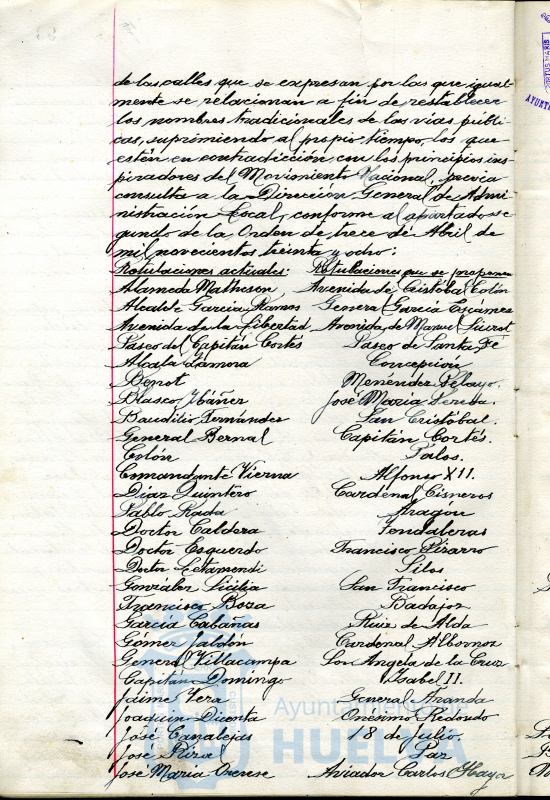 de las calles que se expresan por las que igual-
mente se relacionan a fin de restablecer
los nombres tradicionales de las vías públi-
cas, suprimiendo al propio tiempo, los que
estén en contradicción con los principios ins-
piradores del Movimiento Nacional, previa
consulta a la Dirección General de Admi-
nistración Local, conforme al apartado se-
gundo de la Orden de trece de Abril de
mil novecientos treinta y ocho:
Rotulaciones actuales: Rotulaciones que se proponen
Alameda Mathesen Avenida de Cristóbal Colón
Alcalde Garcia Ramos General García Escámez
Avenida de la Libertad Avenida de Manuel Siurot
Paseo del Capitán Cortés Paseo de Santa Fé
Alcalá Zamora Concepción
Benot Menéndez Pelayo.
Blasco Ibáñez José María Pereda.
Baudilio Fernández San Cristóbal.
General Bernal Capitán Cortés.
Colón Palos.
Comandante Vierna Alfonso XII.
Díaz Quintero Cardenal Cisneros
Pablo Rada Aragón
Doctor Caldera Tendaleras
Doctor Esquerdo Francisco Pizarro
Doctor Letamendi Silos
González Sicilia San Francisco
Francisco Boza Badajoz
García Cabañas Ruiz de Alda
Gómez Jaldón Cardenal Albornoz
General Villacampa Sor Angela de la Cruz
Capitán Domingo Isabel II.
Jaime Vera General Aranda
Joaquin Dicenta Onesimo Redondo
José Canalejas 18 de Julio.
José Rizal Paz
José María Orense Aviador Carlos Haya
Ayuntamiento de
HUELVA